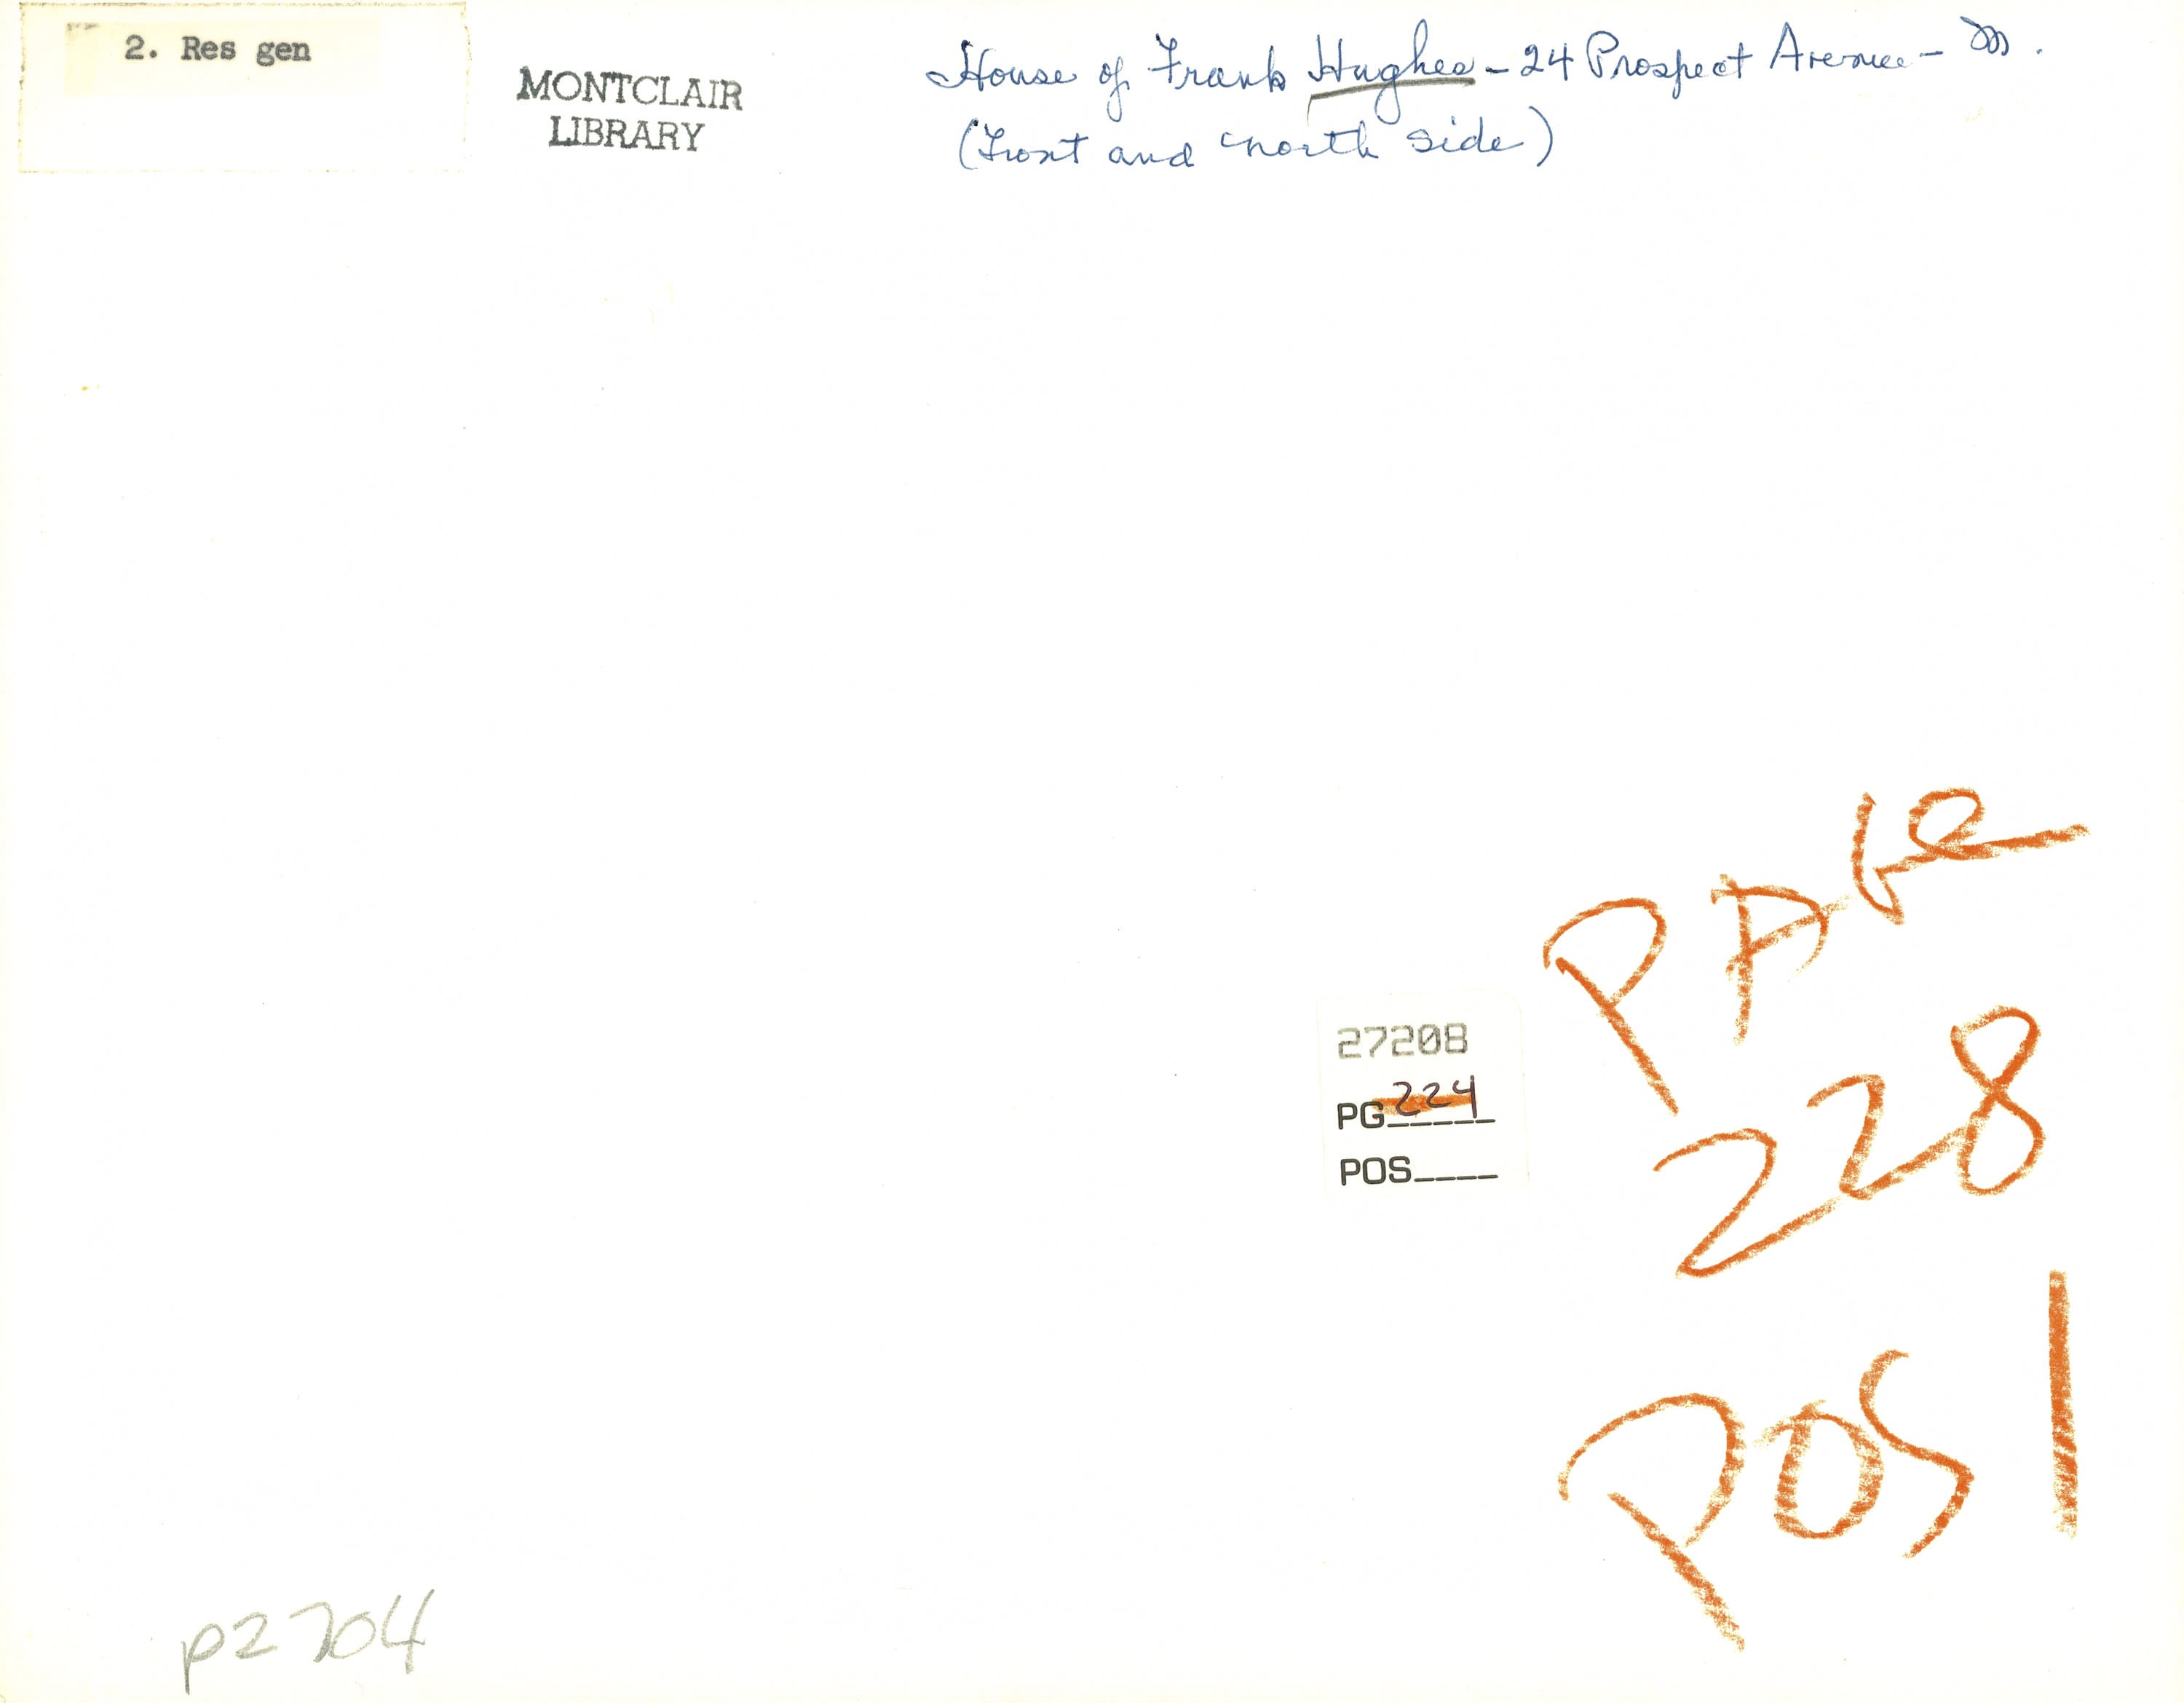 2. Res gen
MONTCLAIR
LIBRARY
House of Frank Hughes - 24 Prospect Avenue - M.
(Front and north side)
PAGE
228
27208
PG 224
POS____
POS 1
P2704